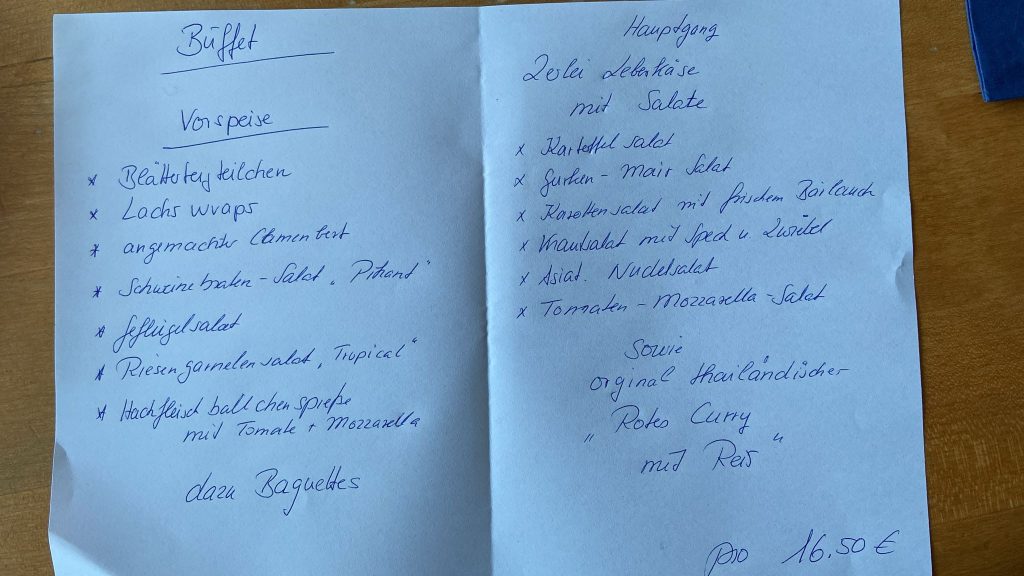 Büffet
Vorspeise
* Blätterteigteilchen
* Lachs wraps
* angemachter Camenbert
* Schweinebraten-Salat „Pikant"
* Geflügelsalat
* Riesengarnelensalat „Tropical"
* Hackfleischbällchenspieße
mit Tomate + Mozzarella
dazu Baguettes
Hauptgang
2erlei Leberkäse
mit Salate
x Kartoffelsalat
x Gurken-Mais Salat
x Karottensalat mit frischem Bärlauch
x Krautsalat mit Speck u. Zwiebel
x Asiat. Nudelsalat
x Tomaten-Mozzarella-Salat
Sowie
orginal thailändischer
„Rotes Curry
mit Reis"
pro 16.50 €